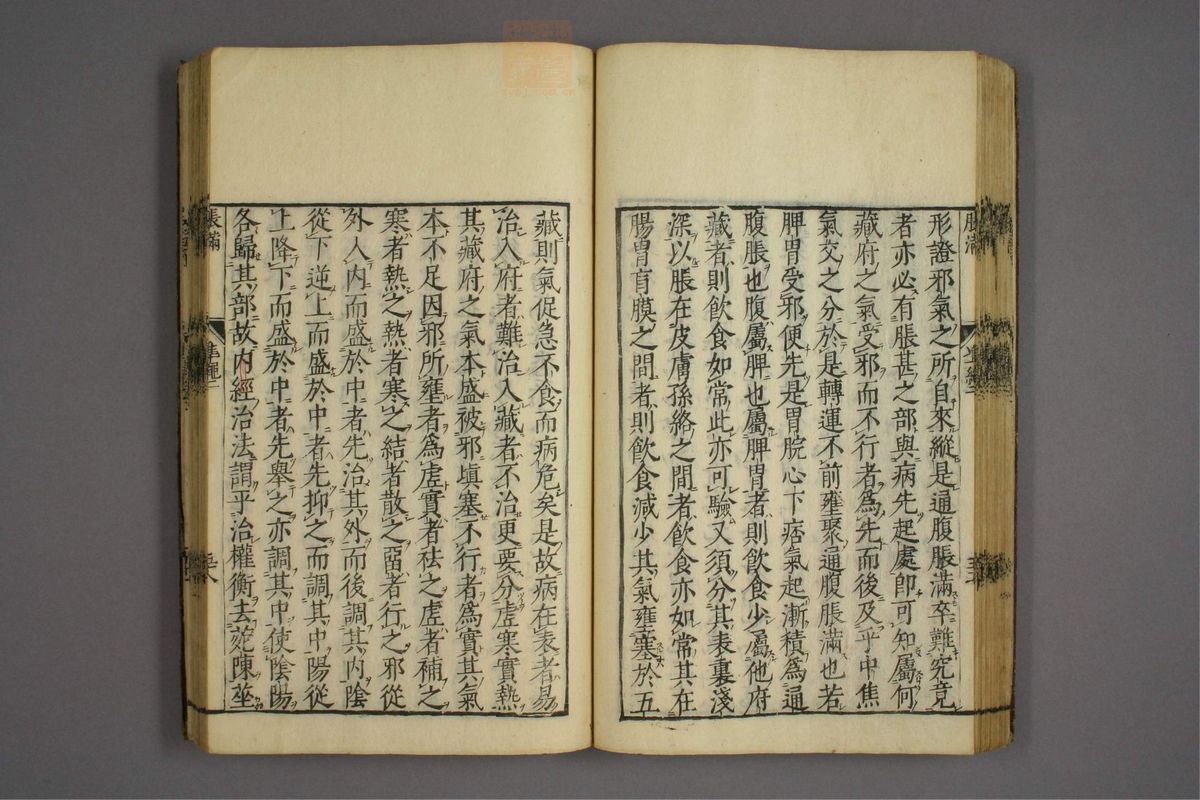 形證邪氣之所自來縱是通腹脹滿卒難究竟
者亦必有脹甚之部與病先起處卽可知屬何
藏府之氣受邪而不行者爲先而後及乎中焦
氣交之分於是轉運不前壅聚通腹脹滿也若
脾胃受邪便先是胃脘心下痞氣起漸積爲通
腹脹也腹屬脾也屬脾胃者則飲食少屬他府
藏者則飲食如常此亦可驗又須分其表裏淺
深以脹在皮膚孫絡之間者飲食亦如常其在
腸胃肓膜之間者則飲食減少其氣壅塞於五
藏則氣促急不食而病危矣是故病在表者易
治入府者難治入藏者不治更要分虛寒實熱
其藏府之氣本盛被邪塡塞不行者爲實其氣
本不足因邪所壅者爲虛實者祛之虛者補之
寒者熱之熱者寒之結者散之留者行之邪從
外入内而盛於中者先治其外而後調其内陰
從下逆上而盛於中者先抑之而調其中陽從
上降下而盛於中者先舉之亦調其中使陰陽
各歸其部故内經治法謂平治權衡去菀陳莝
脹滿
準繩二